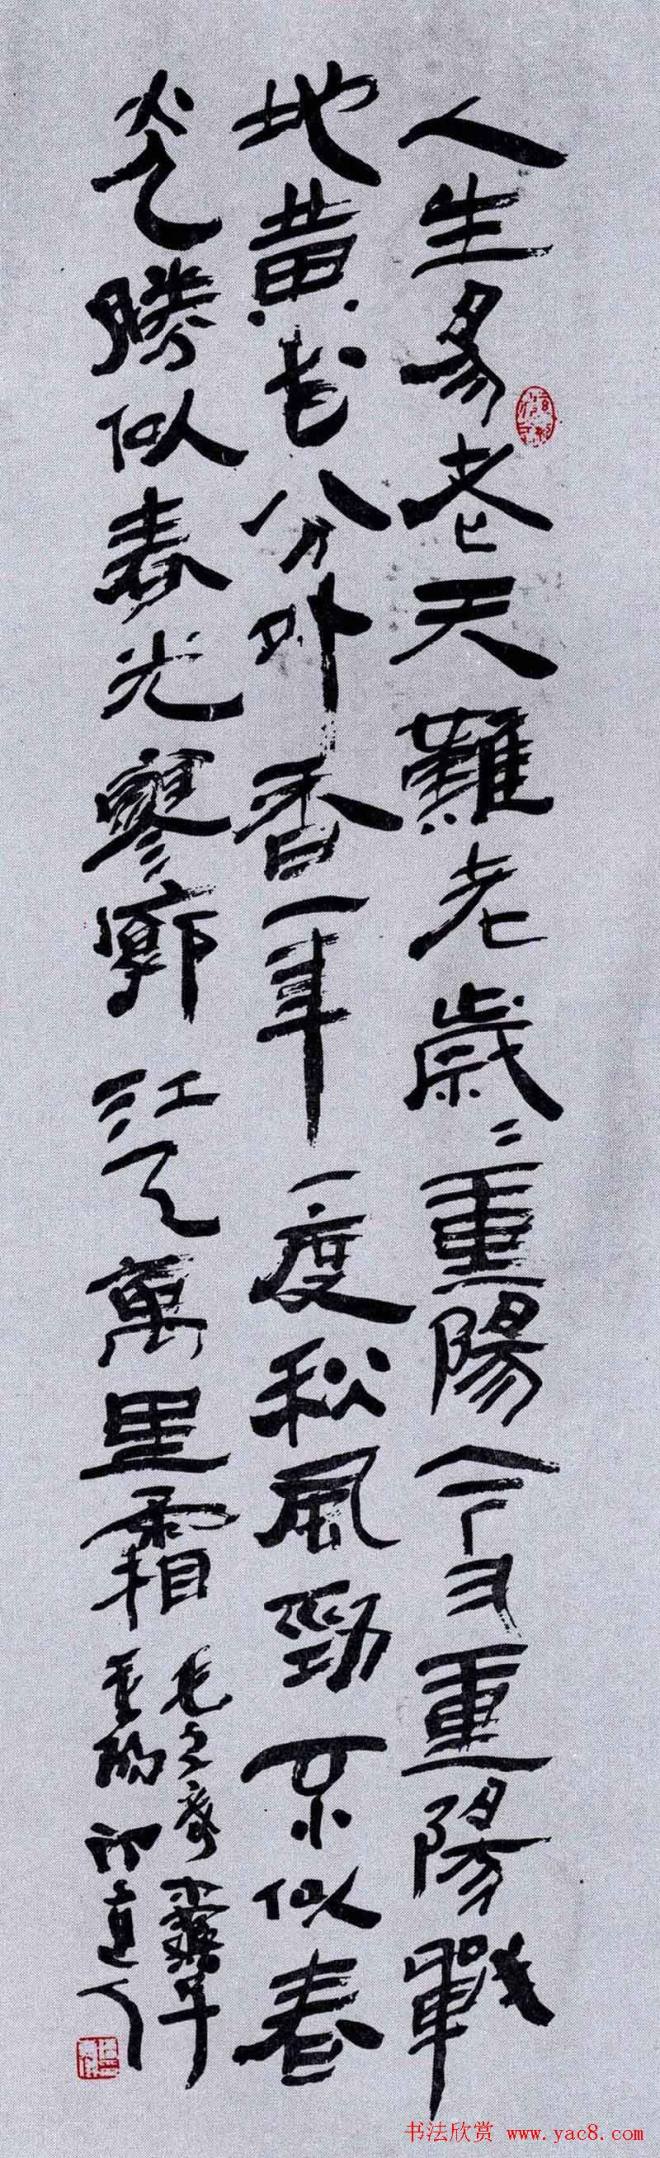 人生易老天難老歲〻重陽今又重陽戰
地黃花分外香一年一度秋風勁不似春
光勝似春光寥廓江天萬里霜
毛主席
重陽
书法欣赏 www.yac8.com